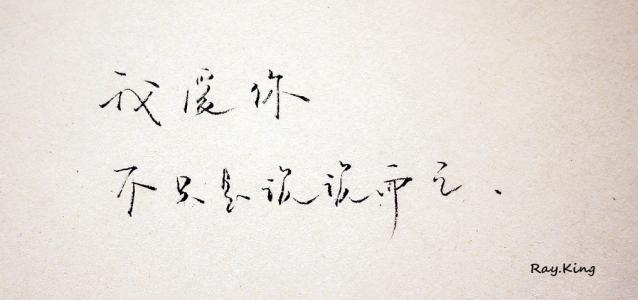 我爱你
不只是说说而已.
Ray.King